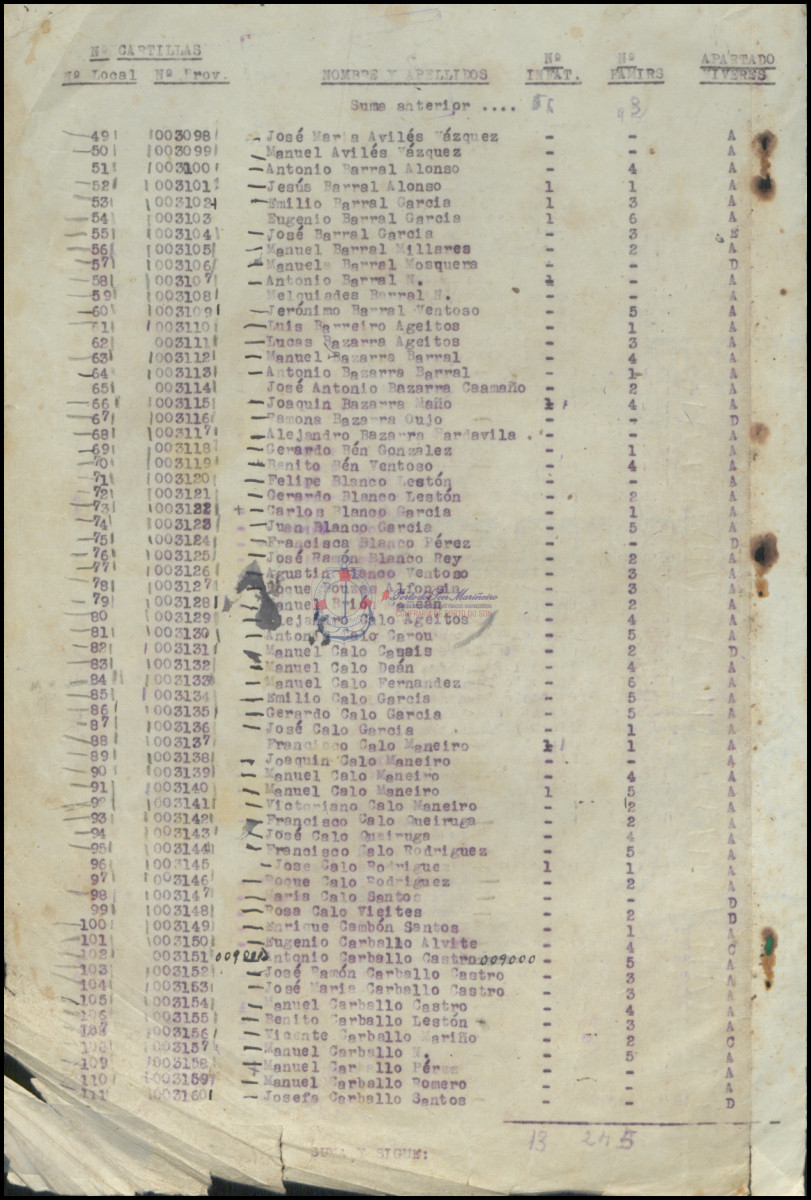 Nº CARTILLAS
Nº Local Nº Prov. NOMBRE Y APELLIDOS Nº INFAT. Nº FAMIRS APARTADO VIVERES
Suma anterior ....
49 003098 - José Maria Avilés Vázquez - - A
50 003099 Manuel Avilés Vázquez - - A
51 003100 Antonio Barral Alonso - 4 A
52 003101 Jesús Barral Alonso 1 1 A
53 003102 Emilio Barral Garcia 1 3 A
54 003103 Eugenio Barral Garcia 1 6 A
55 003104 José Barral Garcia - 3
56 003105 Manuel Barral Millares - 2 A
57 003106 Manuela Barral Mosquera - - D
58 003107 Antonio Barral N. 1 - A
59 003108 Melquiades Barral N. - - A
60 003109 Jerónimo Barral Ventoso - 5 A
61 003110 Luis Barreiro Ageitos - 1 A
62 003111 Lucas Bazarra Ageitos - 3 A
63 003112 Manuel Bazarra Barral - 4 A
64 003113 Antonio Bazarra Barral - 1 A
65 003114 José Antonio Bazarra Caamaño - 2 A
66 003115 Joaquin Bazarra Maño 1 4 A
67 003116 Ramona Bazarra Oujo - - D
68 003117 Alejandro Bazarra Pardavila . - - A
69 003118 Gerardo Bén Gonzalez - 1 A
70 003119 Benito Bén Ventoso - 4 A
71 003120 Felipe Blanco Lestón - - A
72 003121 Gerardo Blanco Lestón - 2 A
73 003122 + Carlos Blanco Garcia - 1 A
74 003123 Juan Blanco Garcia - 5 A
75 003124 Francisca Blanco Pérez - - D
76 003125 José Ramón Blanco Rey - 2 A
77 003126 Agustin Blanco Ventoso - 3 A
78 003127 Roque Bouzas Alfonsin - 3 A
79 003128 Manuel Deán - 2 A
80 003129 Alejandro Calo Ageitos - 4 A
81 003130 Antonio Calo Carou - 5 A
82 003131 Manuel Calo Canais - 2 D
83 003132 Manuel Calo Deán - 4 A
84 003133 Manuel Calo Fernandez - 6 A
85 003134 Emilio Calo Garcia - 5 A
86 003135 Gerardo Calo Garcia - 5 A
87 003136 José Calo Garcia - 1 A
88 003137 Francisco Calo Maneiro 1 1 A
89 003138 Joaquin Calo Maneiro - - A
90 003139 Manuel Calo Maneiro - 4 A
91 003140 Manuel Calo Maneiro 1 5 A
92 003141 Victoriano Calo Maneiro - 2 A
93 003142 Francisco Calo Queiruga - 2 A
94 003143 José Calo Queiruga - 4 A
95 003144 Francisco Calo Rodriguez - 5 A
96 003145 José Calo Rodriguez 1 1 A
97 003146 Roque Calo Rodriguez - 2 A
98 003147 Maria Calo Santos - - D
99 003148 Rosa Calo Vieites - 2 D
100 003149 Enrique Cambón Santos - 1 A
101 003150 Eugenio Carballo Alvite - 4 C
102 003151 Antonio Carballo Castro 009000 - 5 A
103 003152 José Ramón Carballo Castro - 3 A
104 003153 José Maria Carballo Castro - 3 A
105 003154 Manuel Carballo Castro - 4 A
106 003155 Benito Carballo Lestón - 3 A
107 003156 Vicente Carballo Mariño - 2 C
108 003157 Manuel Carballo N. - 5 A
109 003158 Manuel Carballo Pérez - - A
110 003159 Manuel Carballo Romero - - A
111 003160 Josefa Carballo Santos - - D
13 245
SUMA Y SIGUE:
Porto do Son Mariñeiro
CONFRARIA DE PORTO DO SON